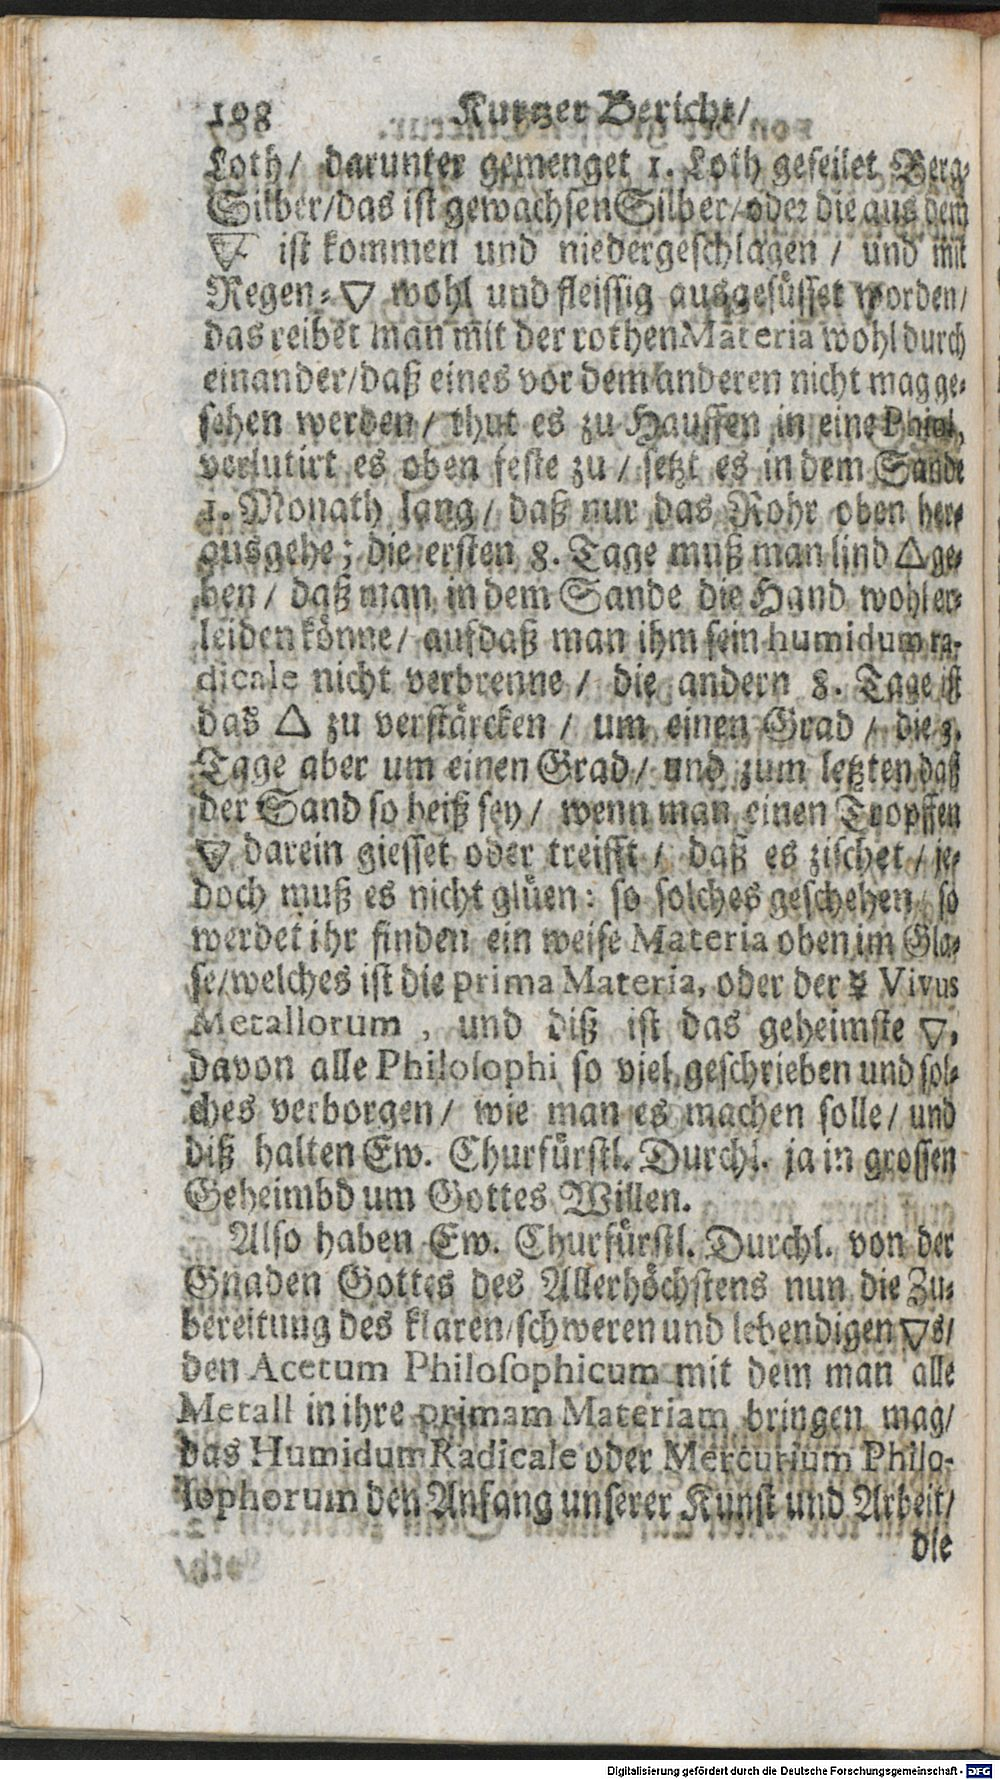 198 Kurtzer Bericht/
Loth/ darunter gemenget 1. Loth gefeilet Berg-
Silber/das ist gewachsen Silber/oder die aus dem
🜄 ist kommen und niedergeschlagen / und mit
Regen-🜄 wohl und fleissig ausgesüsset worden/
das reibet man mit der rothen Materia wohl durch
einander/daß eines vor dem anderen nicht mag ge-
sehen werden/ thut es zu Hauffen in eine Phiol,
verlutirt es oben feste zu / setzt es in dem Sande
1. Monath lang/ daß nur das Rohr oben her-
ausgehe; die ersten 8. Tage muß man lind 🜂 ge-
ben/ daß man in dem Sande die Hand wohl er-
leiden könne/ aufdaß man ihm sein humidum ra-
dicale nicht verbrenne / die andern 8. Tage ist
das 🜂 zu verstärcken / um einen Grad / die 3.
Tage aber um einen Grad/ und zum letzten daß
der Sand so heiß sey/ wenn man einen Tropffen
🜄 darein giesset oder treifft / daß es zischet / je-
doch muß es nicht glüen: so solches geschehen / so
werdet ihr finden ein weise Materia oben im Gla-
se/welches ist die prima Materia, oder der ☿ Vivus
Metallorum , und diß ist das geheimste 🜄,
davon alle Philosophi so viel geschrieben und sol-
ches verborgen/ wie man es machen solle/ und
diß halten Ew. Churfürstl. Durchl. ja in grossen
Geheimbd um Gottes Willen.
Also haben Ew. Churfürstl. Durchl. von der
Gnaden Gottes des Allerhöchstens nun die Zu-
bereitung des klaren/schweren und lebendigen 🜄s/
den Acetum Philosophicum mit dem man alle
Metall in ihre primam Materiam bringen mag/
das Humidum Radicale oder Mercurium Philo-
sophorum den Anfang unserer Kunst und Arbeit/
die
Digitalisierung gefördert durch die Deutsche Forschungsgemeinschaft - DFG